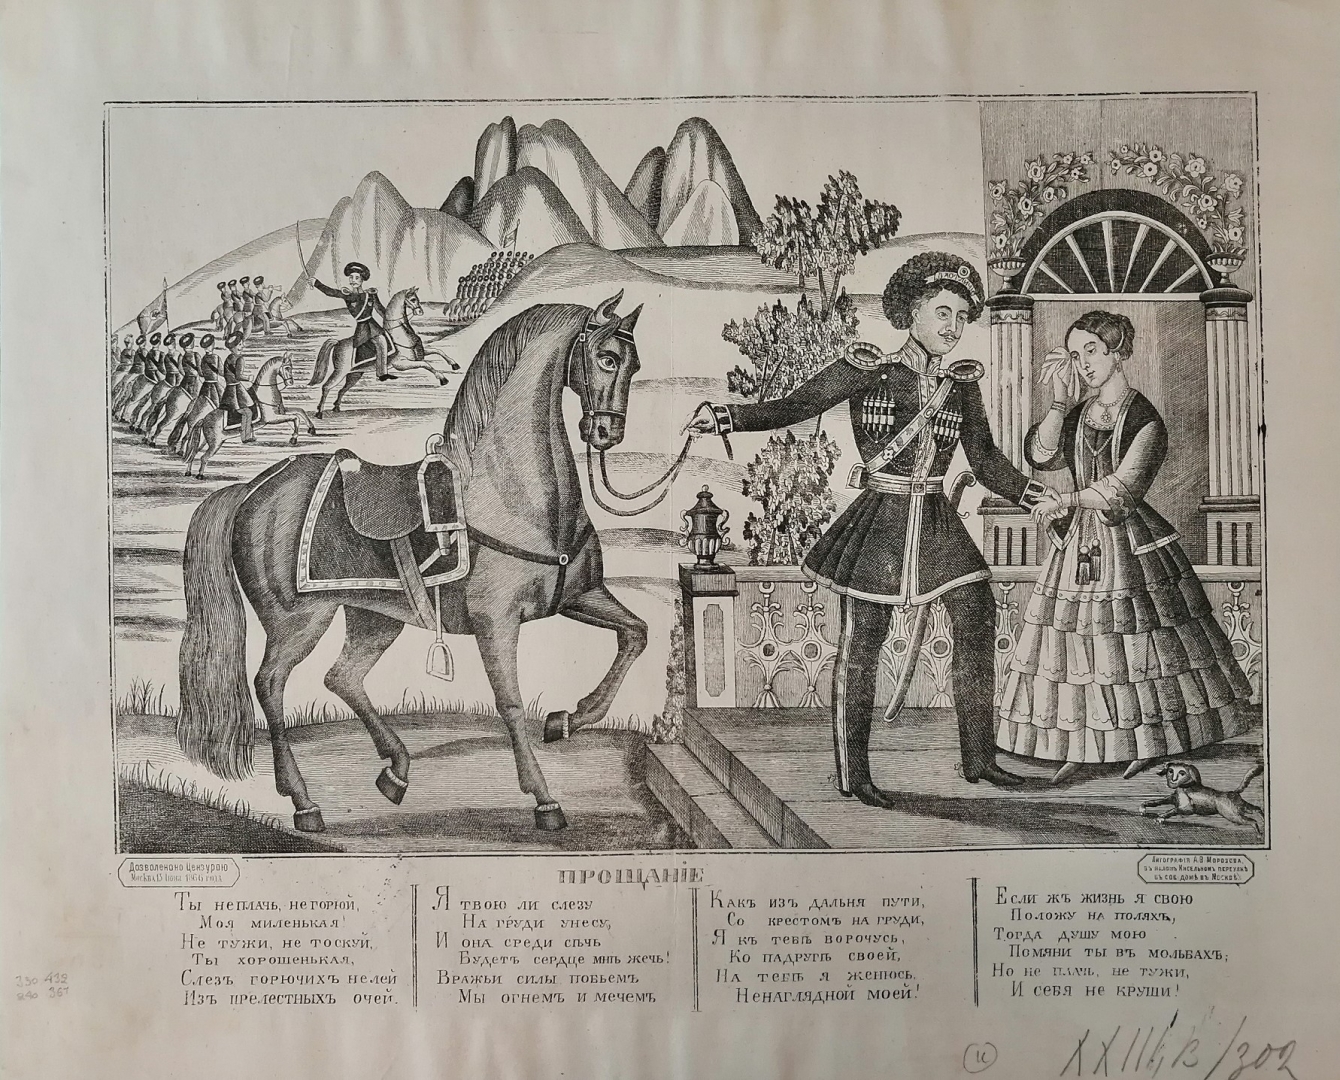 Дозволенно Цензурою
Литографія А.В. Морозова,
въ маломъ Кисельномъ переулкѣ
въ соб. домѣ въ Москвѣ.
ПРОЩАНІЕ
Ты не плачь, не горюй,
Моя миленькая!
Не тужи, не тоскуй,
Ты хорошенькая,
Слезъ горючихъ не лей
Изъ прелестныхъ очей.
Я твою ли слезу
На груди унесу,
И она среди сѣчь
Будетъ сердце мнѣ жечь!
Вражьи силы побьемъ
Мы огнемъ и мечемъ,
Какъ изъ дальня пути,
Со крестомъ на груди,
Я къ тебѣ ворочусь,
Ко падругѣ своей,
На тебѣ я женюсь,
Ненаглядной моей!
Если жъ жизнь я свою
Положу на поляхъ,
Тогда душу мою
Помяни ты въ мольбахъ;
Но не плачь, не тужи,
И себя не круши!
XXIII, B/302